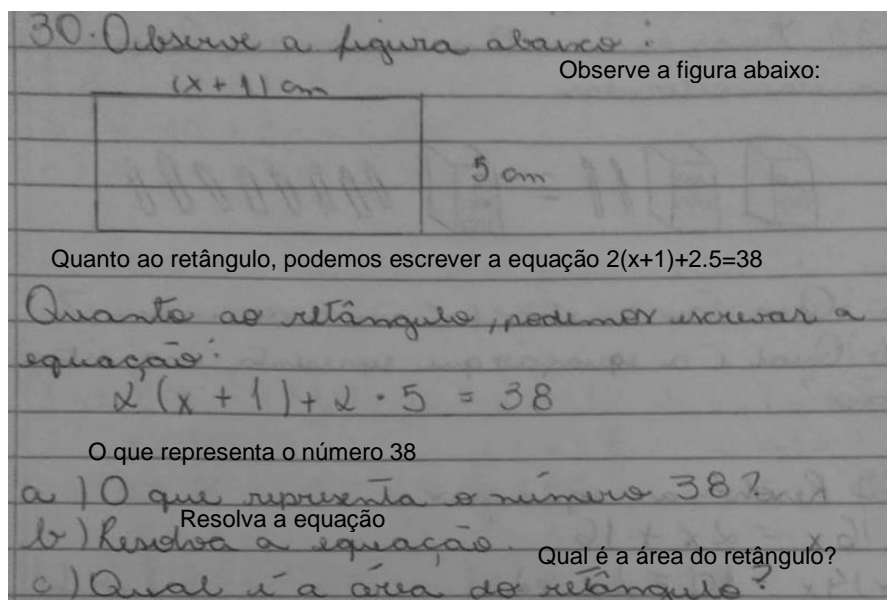 30. Observe a figura abaixo:
Observe a figura abaixo:
(x + 1) cm
5 cm
Quanto ao retângulo, podemos escrever a equação 2(x+1)+2.5=38
Quanto ao retângulo, podemos escrever a
equação:
2(x + 1) + 2 · 5 = 38
O que representa o número 38
a) O que representa o número 38?
Resolva a equação
b) Resolva a equação.
Qual é a área do retângulo?
c) Qual é a área do retângulo?